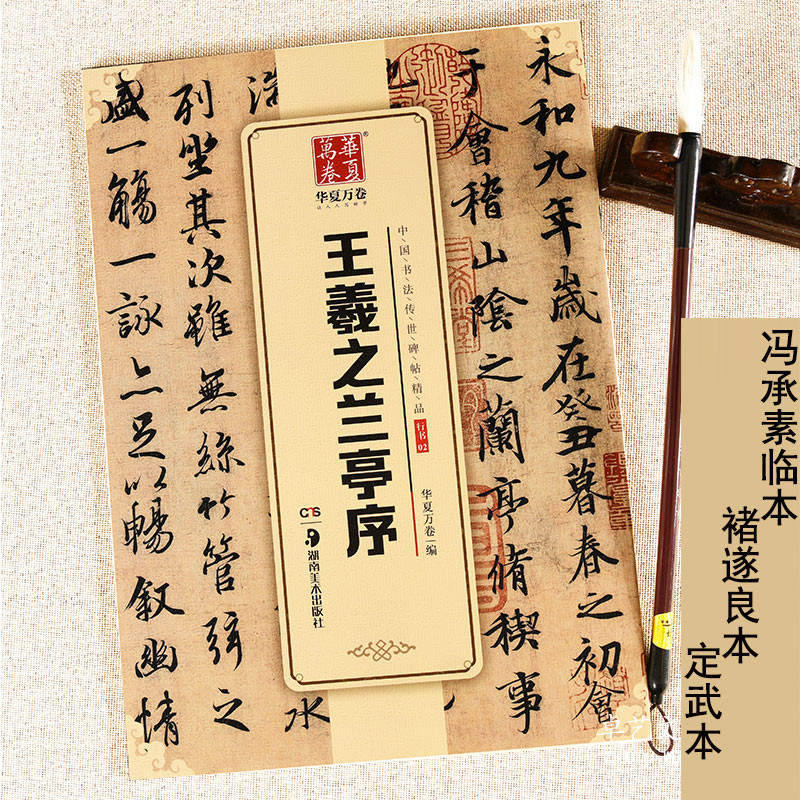 永和九年歲在癸丑暮春之初會
于會稽山陰之蘭亭脩稧事
也
水
列坐其次雖無絲竹管弦之
盛一觴一詠亦足以暢叙幽情
華夏萬卷®
华夏万卷
让人人写好字
中\国\书\法\传\世\碑\帖\精\品 行书 02
王羲之兰亭序
华夏万卷 编
湖南美术出版社
冯承素临本
褚遂良本
定武本